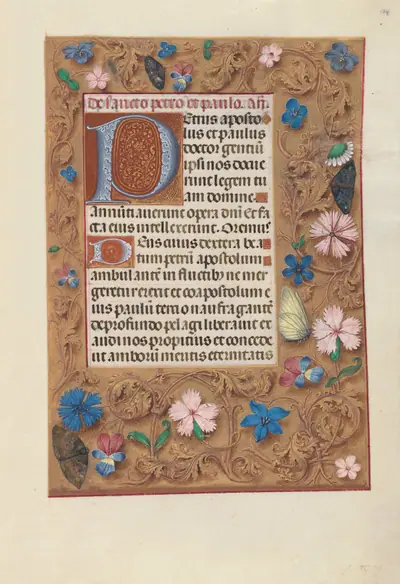 De sancto petro et paulo. An̄.
Petrus aposto
lus et paulus
doctor gentiū
ipsi nos docue
runt legem tu
am domine.
Annūtiaverunt opera dn̄i Et fa
cta eius intellexerunt. Oremus
Deus cuius dextera bea
tum petrū apostolum
ambulantē in fluctibꝫ ne mer
geretur erexit et coapostolum e
ius paulū tertio naufragantē
de profundo pelagi liberavit ex
audi nos propitius et concede
ut amborū meritis eternitatis